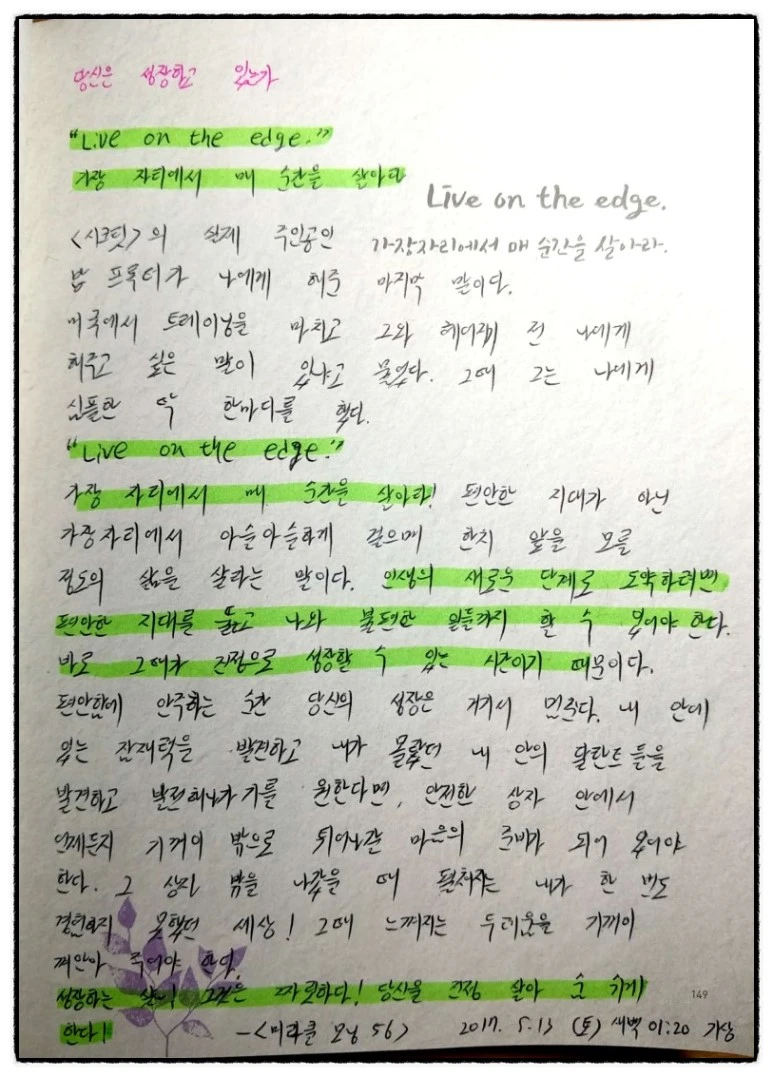 당신은 성장하고 있는가
"Live on the edge."
가장 자리에서 매 순간을 살아라
Live on the edge.
가장자리에서 매 순간을 살아라.
<시크릿>의 실제 주인공인
밥 프록터가 나에게 해준 마지막 말이다.
미국에서 트레이닝을 마치고 그와 헤어지기 전 나에게
해주고 싶은 말이 있냐고 물었다. 그때 그는 나에게
심플한 딱 한마디를 했다.
"Live on the edge."
가장 자리에서 매 순간을 살아라! 편안한 지대가 아닌
가장자리에서 아슬아슬하게 걸으며 한치 앞을 모를
정도의 삶을 살라는 말이다. 인생의 새로운 단계로 도약하려면
편안한 지대를 뚫고 나와 불편한 일들까지 할 수 있어야 한다.
바로 그때가 진정으로 성장할 수 있는 시간이기 때문이다.
편안함에 안주하는 순간 당신의 성장은 거기서 멈춘다. 내 안에
있는 잠재력을 발견하고 내가 몰랐던 내 안의 달란트들을
발견하고 발전해나가기를 원한다면, 안전한 상자 안에서
언제든지 기꺼이 밖으로 튀어나갈 마음의 준비가 되어 있어야
한다. 그 상자 밖을 나갔을 때 펼쳐지는 내가 한 번도
경험하지 못했던 세상! 그때 느껴지는 두려움을 기꺼이
껴안아 주어야 한다.
성장하는 삶! 그것은 짜릿하다! 당신을 진정 살아 숨 쉬게
한다!
149
-<미라클 모닝 56> 2017. 5.13 (토) 새벽 01:20 가상